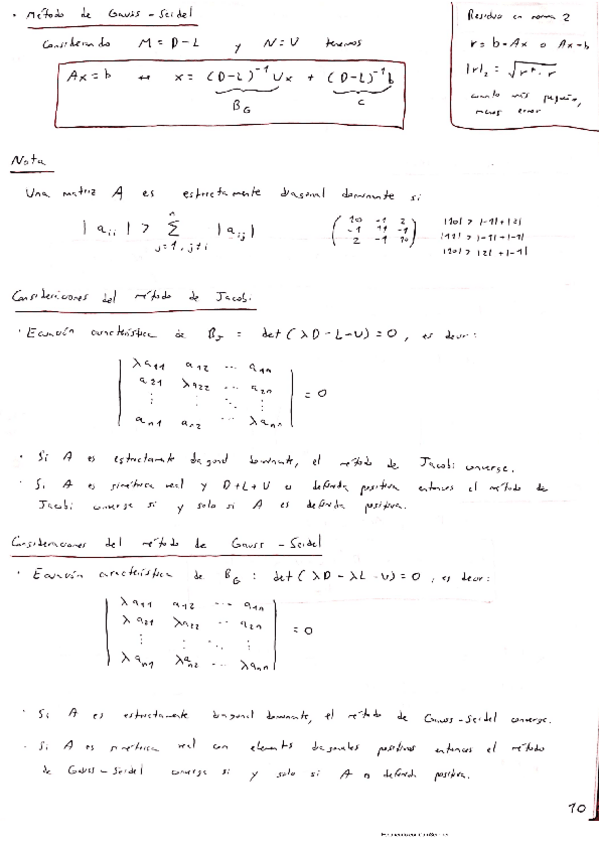 · Método de Gauss-Seidel
Considerando M = D-L y N = U tenemos
Ax = b ↔ x = (D-L)^-1 Ux + (D-L)^-1 b
B_G C
Residuo en norma 2
r = b - Ax o Ax - b
|r|_2 = √(r* · r)
cuanto más pequeño,
menos error
Nota
Una matriz A es estrictamente diagonal dominante si
|a_ii| > Σ^n_{j=1, j≠i} |a_ij|
( 10 -1 2 |10| > |-1| + |2|
-1 11 -1 |11| > |-1| + |-1|
2 -1 10 ) |10| > |2| + |-1|
Consideraciones del método de Jacobi
· Ecuación característica de B_J = det(λD-L-U) = 0, es decir:
| λa_11 a_12 ... a_1n |
| a_21 λa_22 ... a_2n |
| ⋮ ⋮ ⋱ ⋮ | = 0
| a_n1 a_n2 ... λa_nn |
· Si A es estrictamente diagonal dominante, el método de Jacobi converge.
· Si A es simétrica real y D+L+U es definida positiva entonces el método de
Jacobi converge si y solo si A es definida positiva.
Consideraciones del método de Gauss-Seidel
· Ecuación característica de B_G : det(λD-λL-U) = 0, es decir:
| λa_11 a_12 ... a_1n |
| λa_21 λa_22 ... a_2n |
| ⋮ ⋮ ⋱ ⋮ | = 0
| λa_n1 λa_n2 ... λa_nn |
· Si A es estrictamente diagonal dominante, el método de Gauss-Seidel converge.
· Si A es simétrica real con elementos diagonales positivos entonces el método
de Gauss-Seidel converge si y solo si A es definida positiva.
10